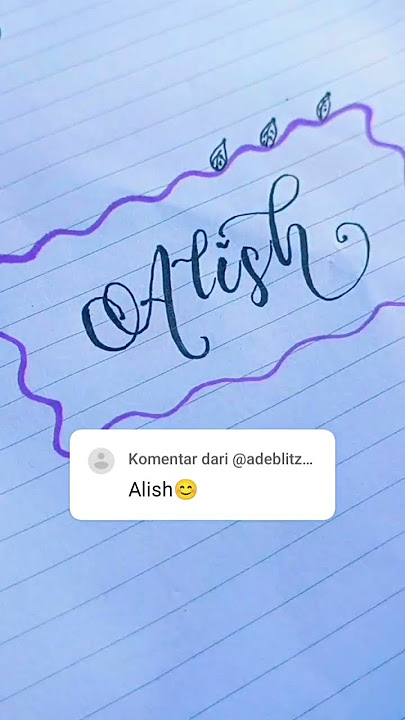 Alish
Komentar dari @adeblitz...
Alish😊